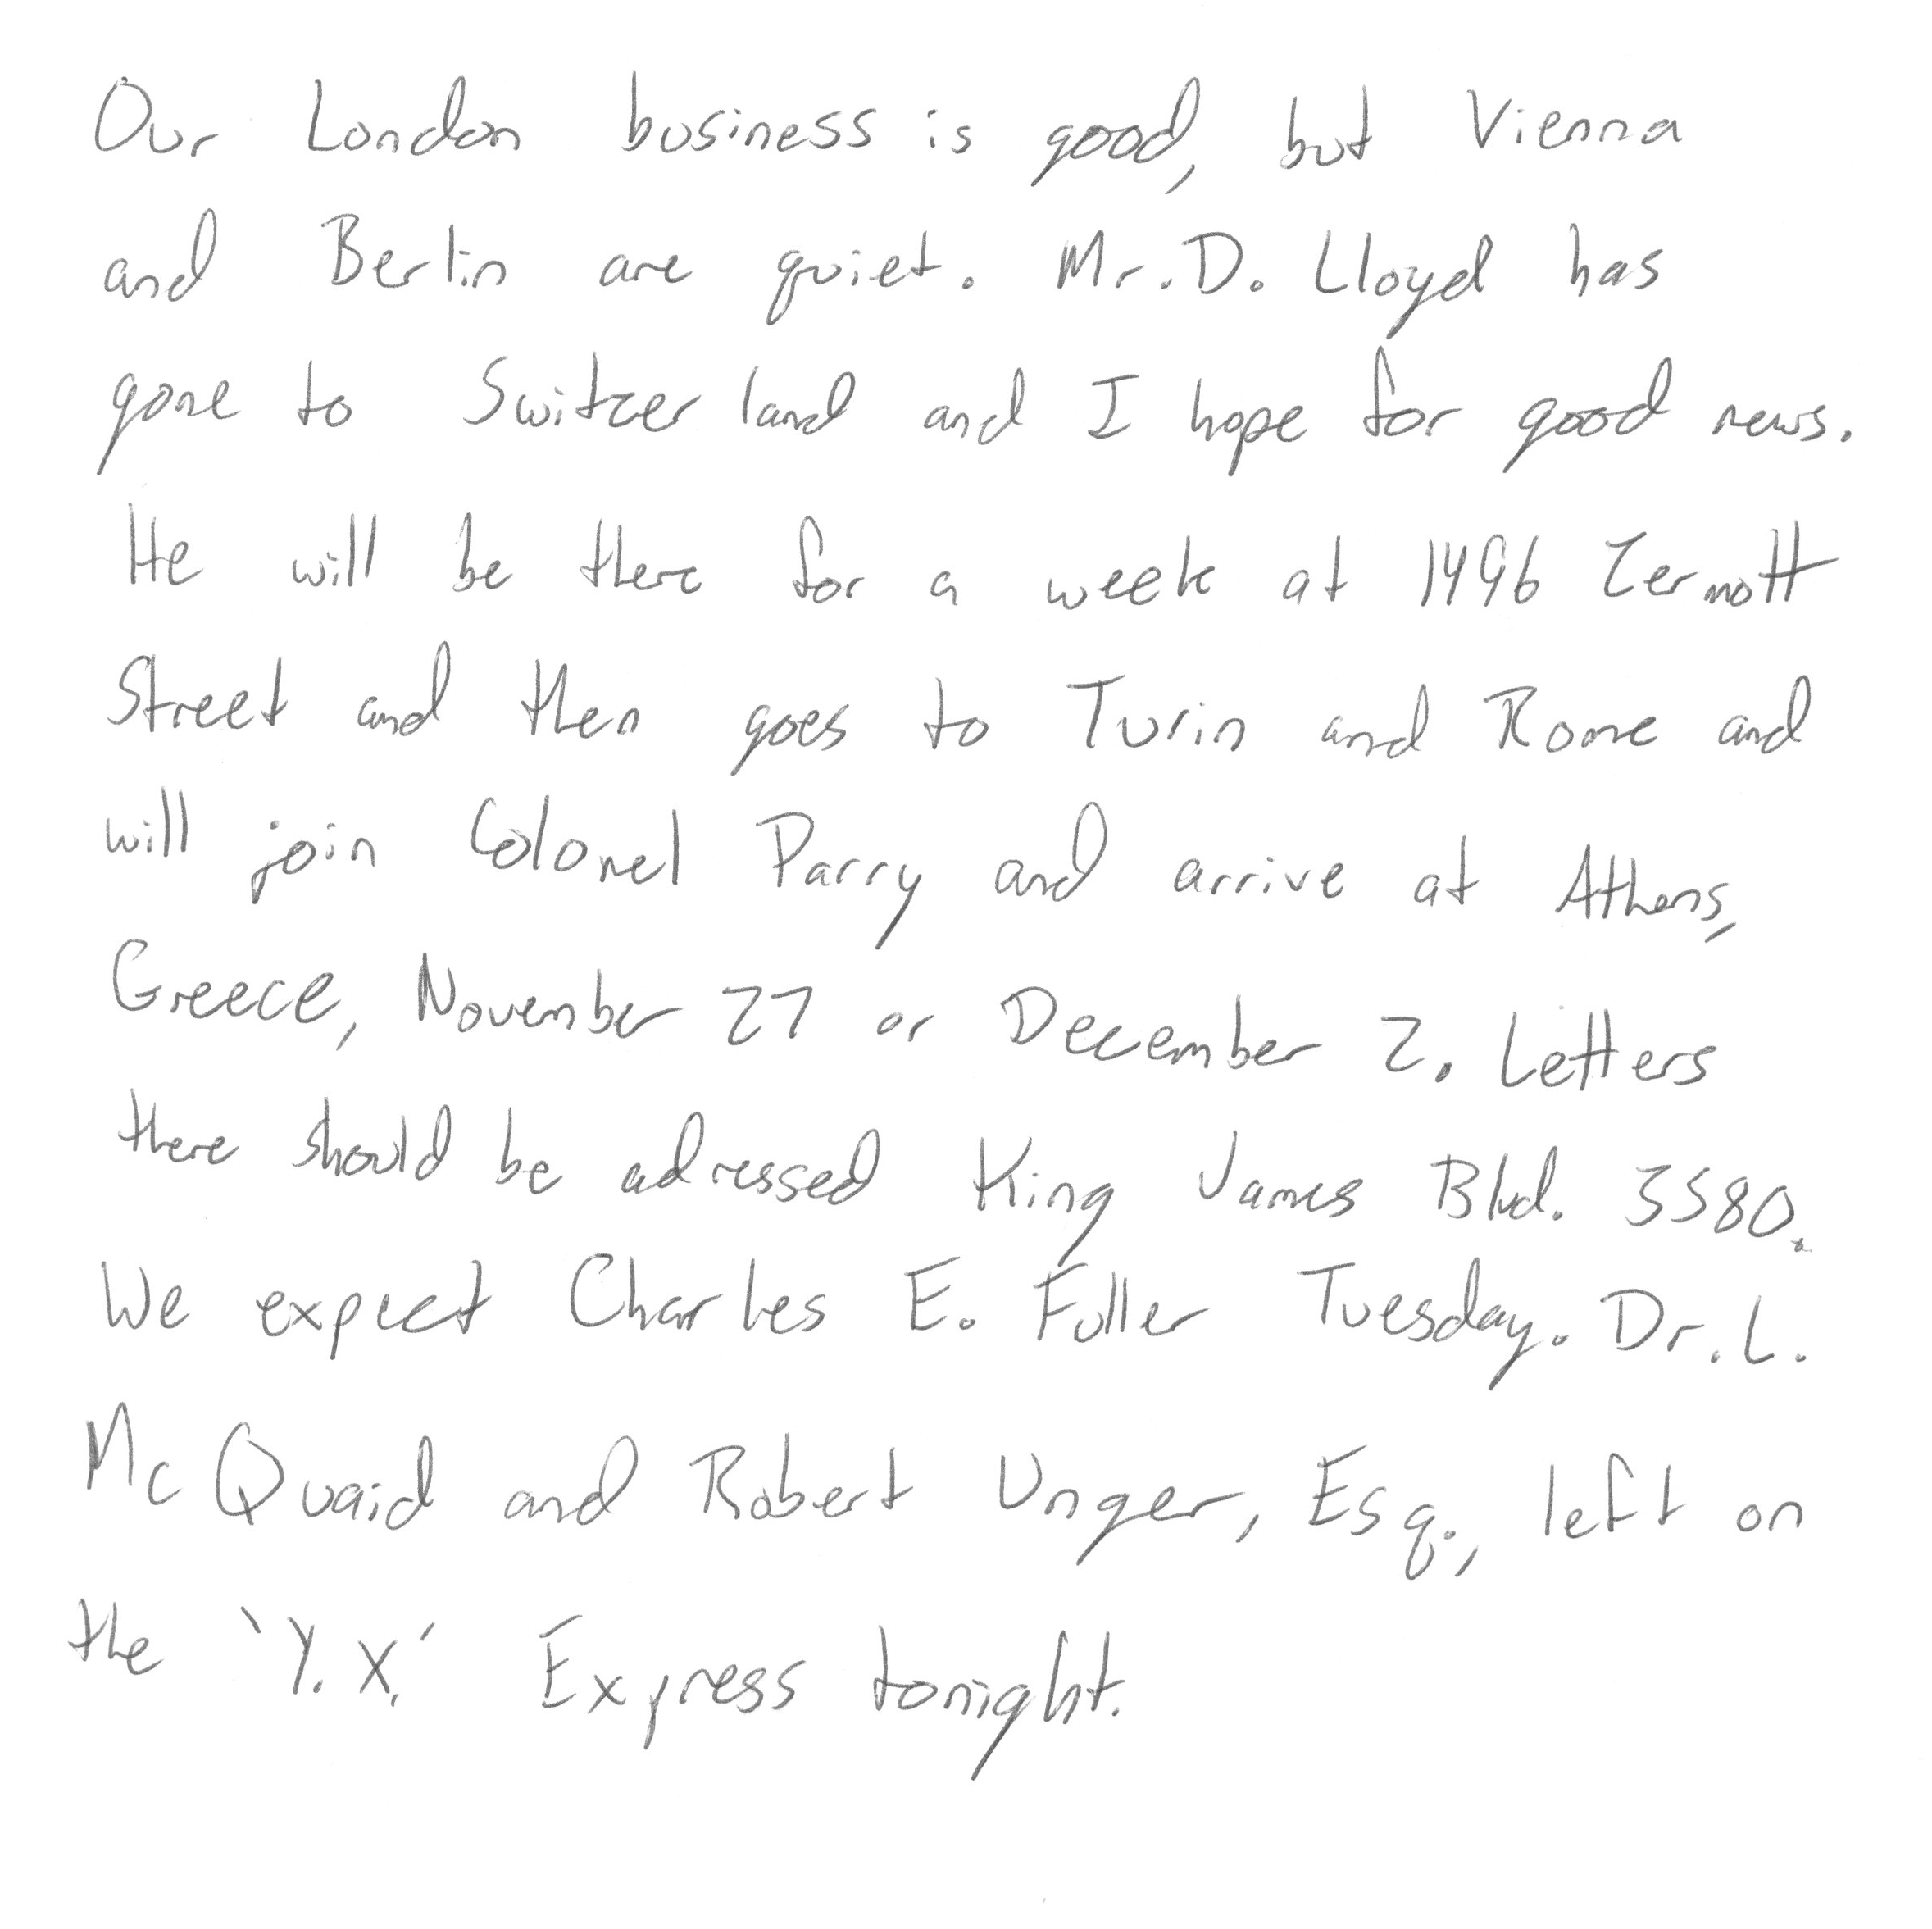 Our London business is good, but Vienna
and Berlin are quiet. Mr. D. Lloyd has
gone to Switzerland and I hope for good news.
He will be there for a week at 1496 Zermott
Street and then goes to Turin and Rome and
will join Colonel Parry and arrive at Athens,
Greece, November 27 or December 2. Letters
there should be adressed King James Blvd. 3580.
We expect Charles E. Fuller Tuesday. Dr. L.
McQuaid and Robert Unger, Esq., left on
the 'Y.X.' Express tonight.